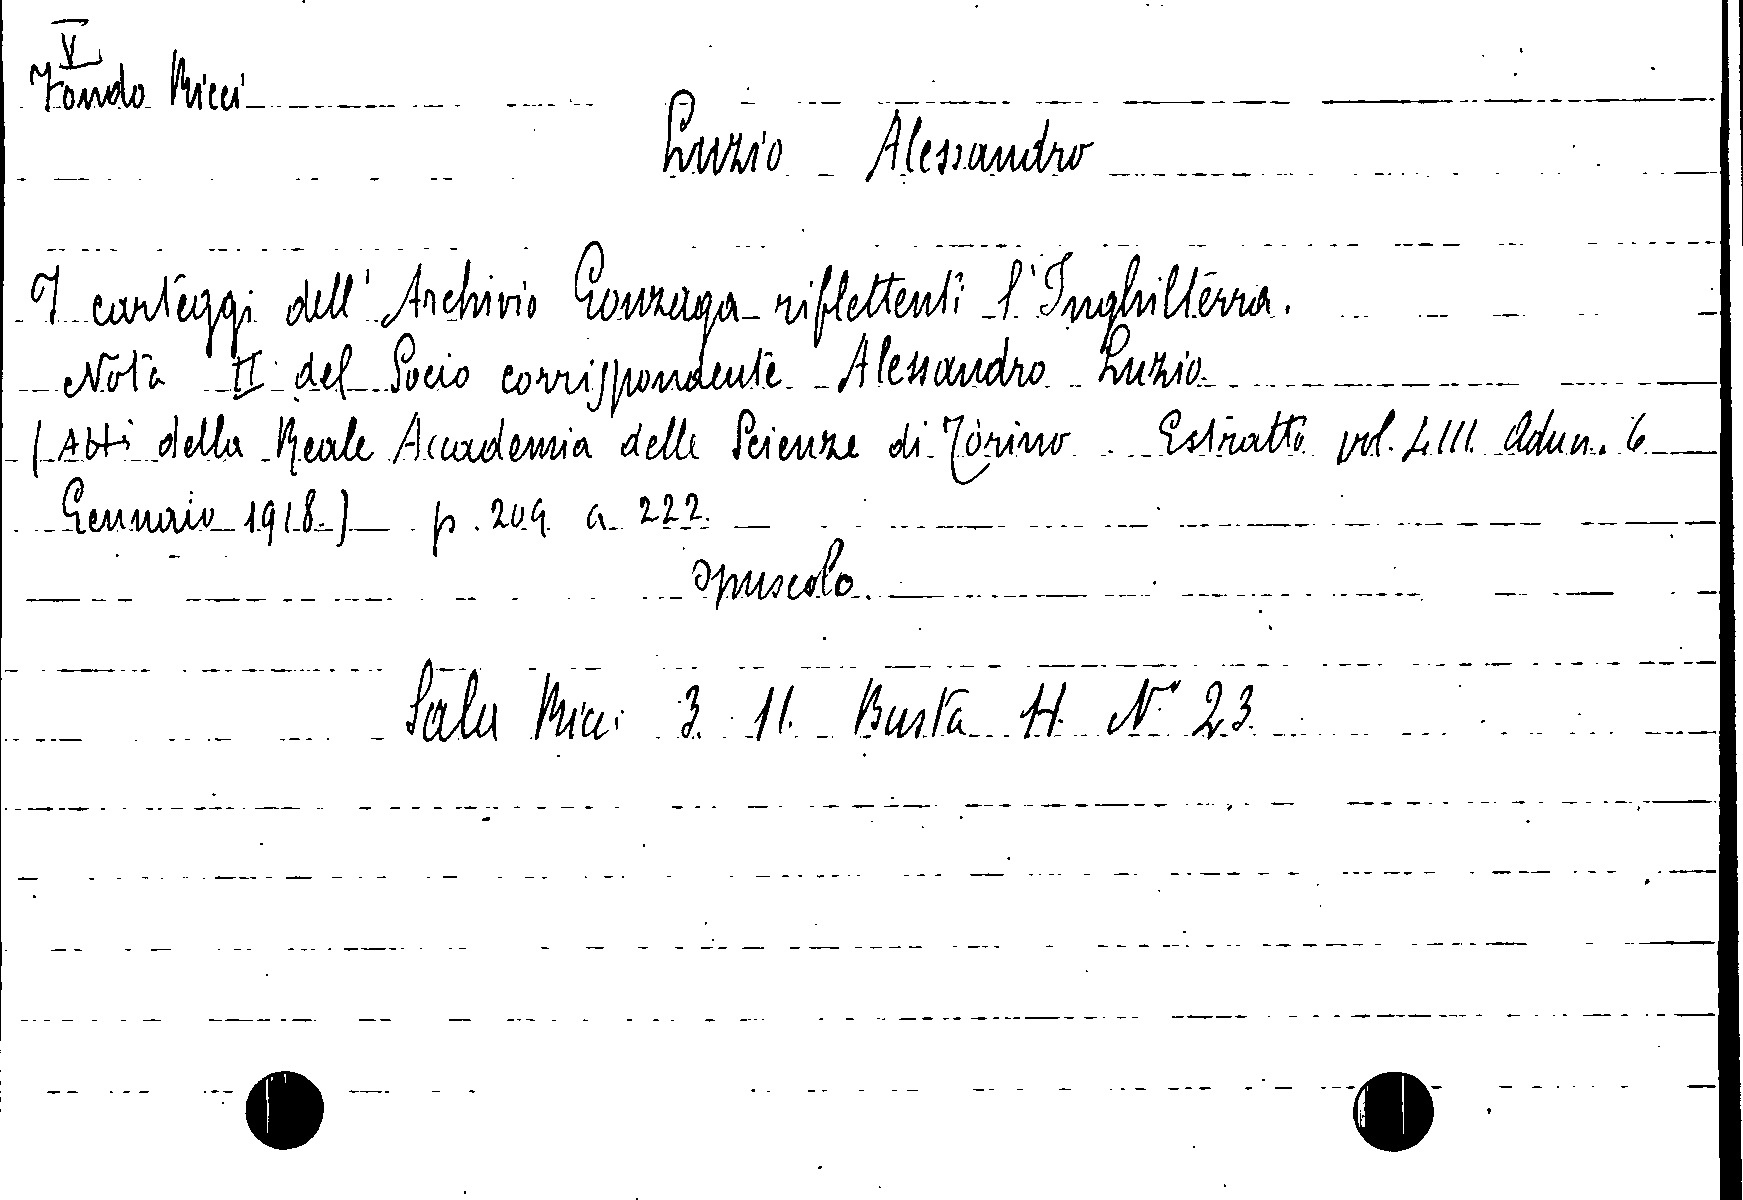 V
Fondo Ricci
Luzio Alessandro
I carteggi dell'Archivio Gonzaga riflettenti l'Inghilterra.
Nota II del Socio corrispondente Alessandro Luzio.
(Atti della Reale Accademia delle Scienze di Torino. Estratto vol. LIII. Adun. 6
Gennaio 1918.) p. 209 a 222.
opuscolo.
Sala Ricci 3. 11. Busta H. N° 23.